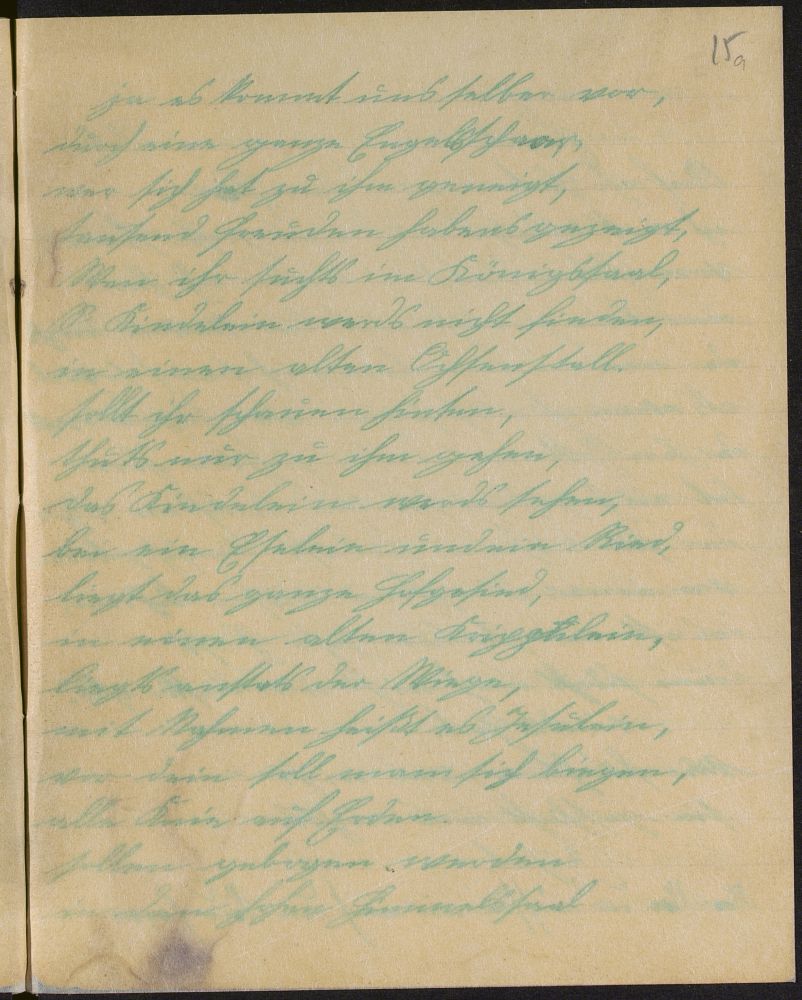 15a
ja es kommt uns selber vor,
durch eine ganze Engelsschaar,
wer sich hat zu ihm geneigt,
tausend Freuden habens gezeigt,
Wen ihr suchts im Königssaal,
S' Kindelein werds nicht finden,
in einen alten Ochsenstall.
sollt ihr schauen hinten,
thuts nur zu ihm gehen,
das Kindelein werds sehen,
bei ein Eselein und ein Rind,
liegt das ganze Hofgesind,
in einen alten Krippelein,
liegts anstats der Wiege,
mit Nahmen heißt es Jesulein,
vor dein soll mann sich biegen,
alle Knie auf Erden.
sollen gebogen werden
in dem hohen Himmelssaal